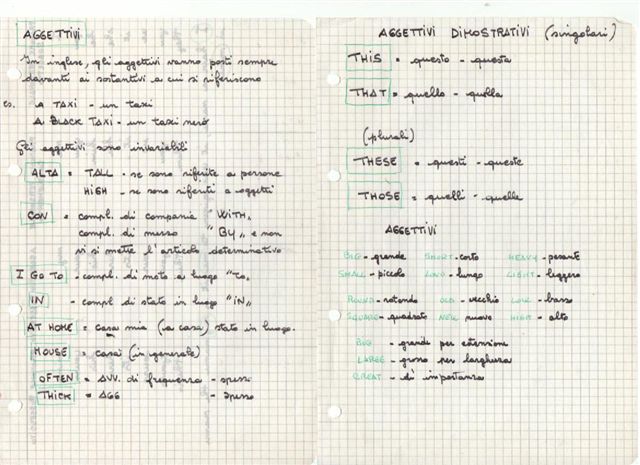 AGGETTIVI
In inglese, gli aggettivi vanno posti sempre
davanti ai sostantivi a cui si riferiscono
es. A TAXI - un taxi
A BLACK TAXI - un taxi nero
Gli aggettivi sono invariabili
ALTA = TALL - se sono riferite a persone
HIGH - se sono riferiti a oggetti
CON = compl. di compania "WITH"
compl. di mezzo "BY" e non
vi si mette l'articolo determinativo
I GO TO - compl. di moto a luogo "TO"
IN - compl di stato in luogo "IN"
AT HOME = casa mia (la casa) stato in luogo.
HOUSE = casa (in generale)
OFTEN = AVV. di frequenza - spesso
THICK = AGG - spesso
AGGETTIVI DIMOSTRATIVI (singolari)
THIS = questo - questa
THAT = quello - quella
(plurali)
THESE = questi - queste
THOSE = quelli - quelle
AGGETTIVI
BIG - grande SHORT - corto HEAVY - pesante
SMALL - piccolo LONG - lungo LIGHT - leggero
ROUND - rotondo OLD - vecchio LOW - basso
SQUARE - quadrato NEW nuovo HIGH - alto
BIG - grande per estensione
LARGE - grosso per larghezza
GREAT - di importanza